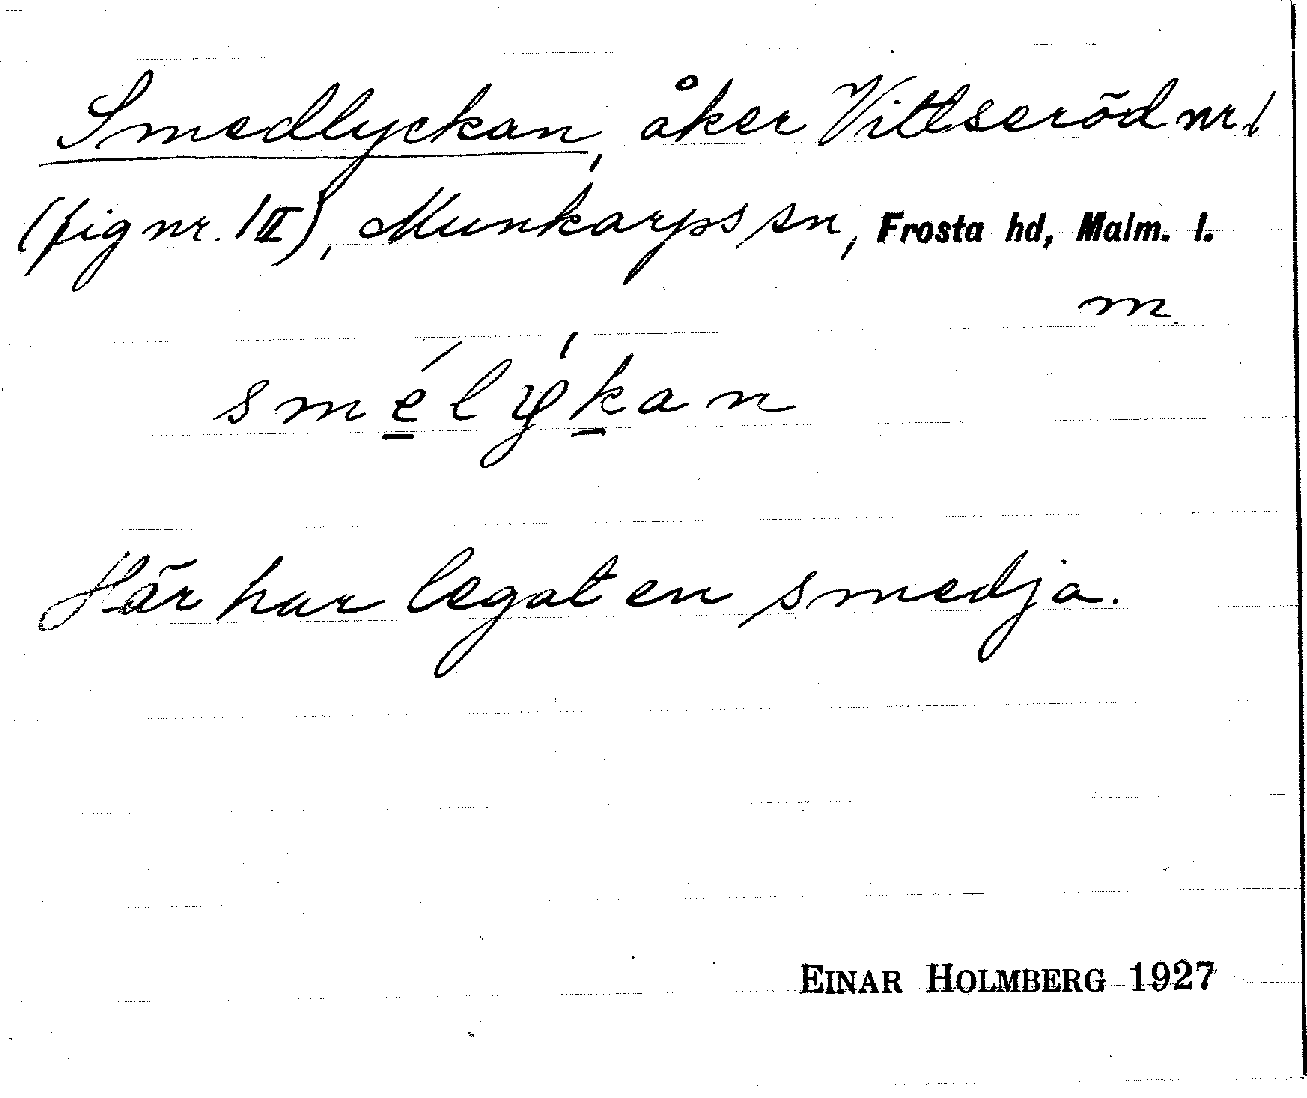 Smedlyckan, åker Vittseröd nr 1
(fig nr. 1 II), Munkarps sn, Frosta hd, Malm. l.
m.
smélýkan
Här har legat en smedja.
EINAR HOLMBERG 1927